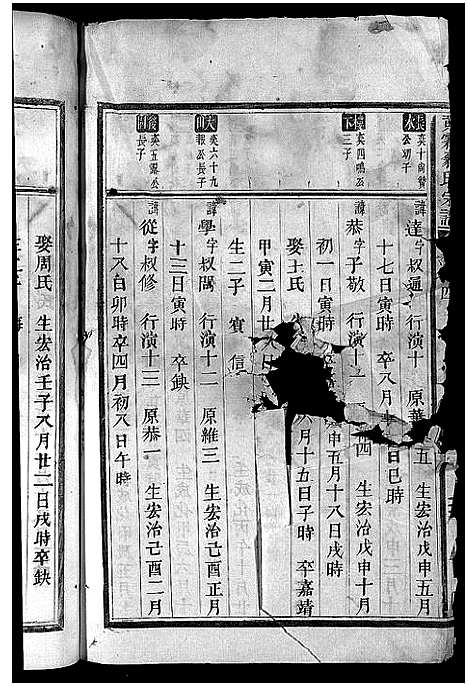 長 英十
水 公幼子
諱達 字叔通 行演十 原華五 生宏治戊申五月
十七日寅時 卒八月 日巳時
英四鳴公
下 三子
諱恭 字子敬 行演十一 四 生宏治戊申十月
初一日寅時 申五月十八日戌時
娶王氏 八月十五日子時 卒嘉靖
甲寅二月廿八
生二子 寶 信
英六十九
田 報公長子
諱學 字叔 行演十二 原維三 生宏治己酉正月
十三日寅時 卒缺
後 英五
公長子
諱從 字叔修 行演十三 原恭一 生宏治己酉二月
十八日卯時卒四月初八日午時
娶周氏 生宏治壬子八月廿二日戌時卒缺